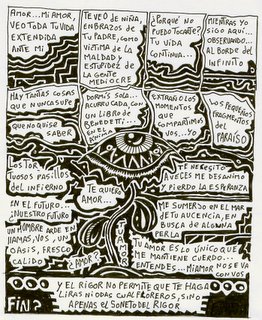 AMOR... MI AMOR,
VEO TODA TU VIDA
EXTENDIDA
ANTE MI
TE VEO DE NIÑA,
EN BRAZOS DE
TU PADRE, COMO
VICTIMA DE LA
MALDAD Y
ESTUPIDEZ DE
LA GENTE
MEDIOCRE
¿PORQUÉ NO
PUEDO TOCARTE?
TU VIDA
CONTINUA...
MIENTRAS YO
SIGO AQUI...
OBSERVANDO
AL BORDE DEL
INFINITO
HAY TANTAS COSAS
QUE NUNCA SUPE
QUE NO QUISE
SABER
DORMIS SOLA...
ACURRUCADA, CON
UN LIBRO DE
BENEDETTI...
EN EL
EXTRAÑO LOS
MOMENTOS
QUE
COMPARTIMOS
VOS... YO
LOS PEQUEÑOS
FRAGMENTOS
DEL
PARAÍSO
LOS TOR
TUOSOS PASILLOS
DEL INFIERNO
TE QUIERO
AMOR...
TE NECESITO
A VECES ME DESANIMO
Y PIERDO LA ESPERANZA
EN EL FUTURO...
¿NUESTRO FUTURO?
UN HOMBRE ARDE EN
LLAMAS, VOS, UN
OASIS, FRESCO
CALIDO
¿AMOR?
ME SUMERJO EN EL MAR
DE TU AUCENCIA, EN
BUSCA DE ALGUNA
PERLA
TU AMOR ES LO UNICO QUE
ME MANTIENE CUERDO...
ENTENDES... MI AMOR NO SE VA
CON VOS
FIN?
Y EL RIGOR NO PERMITE QUE TE HAGA
LIRAS NI ODAS CUAL FLOREROS, SINO
APENAS EL SONETO DEL RIGOR